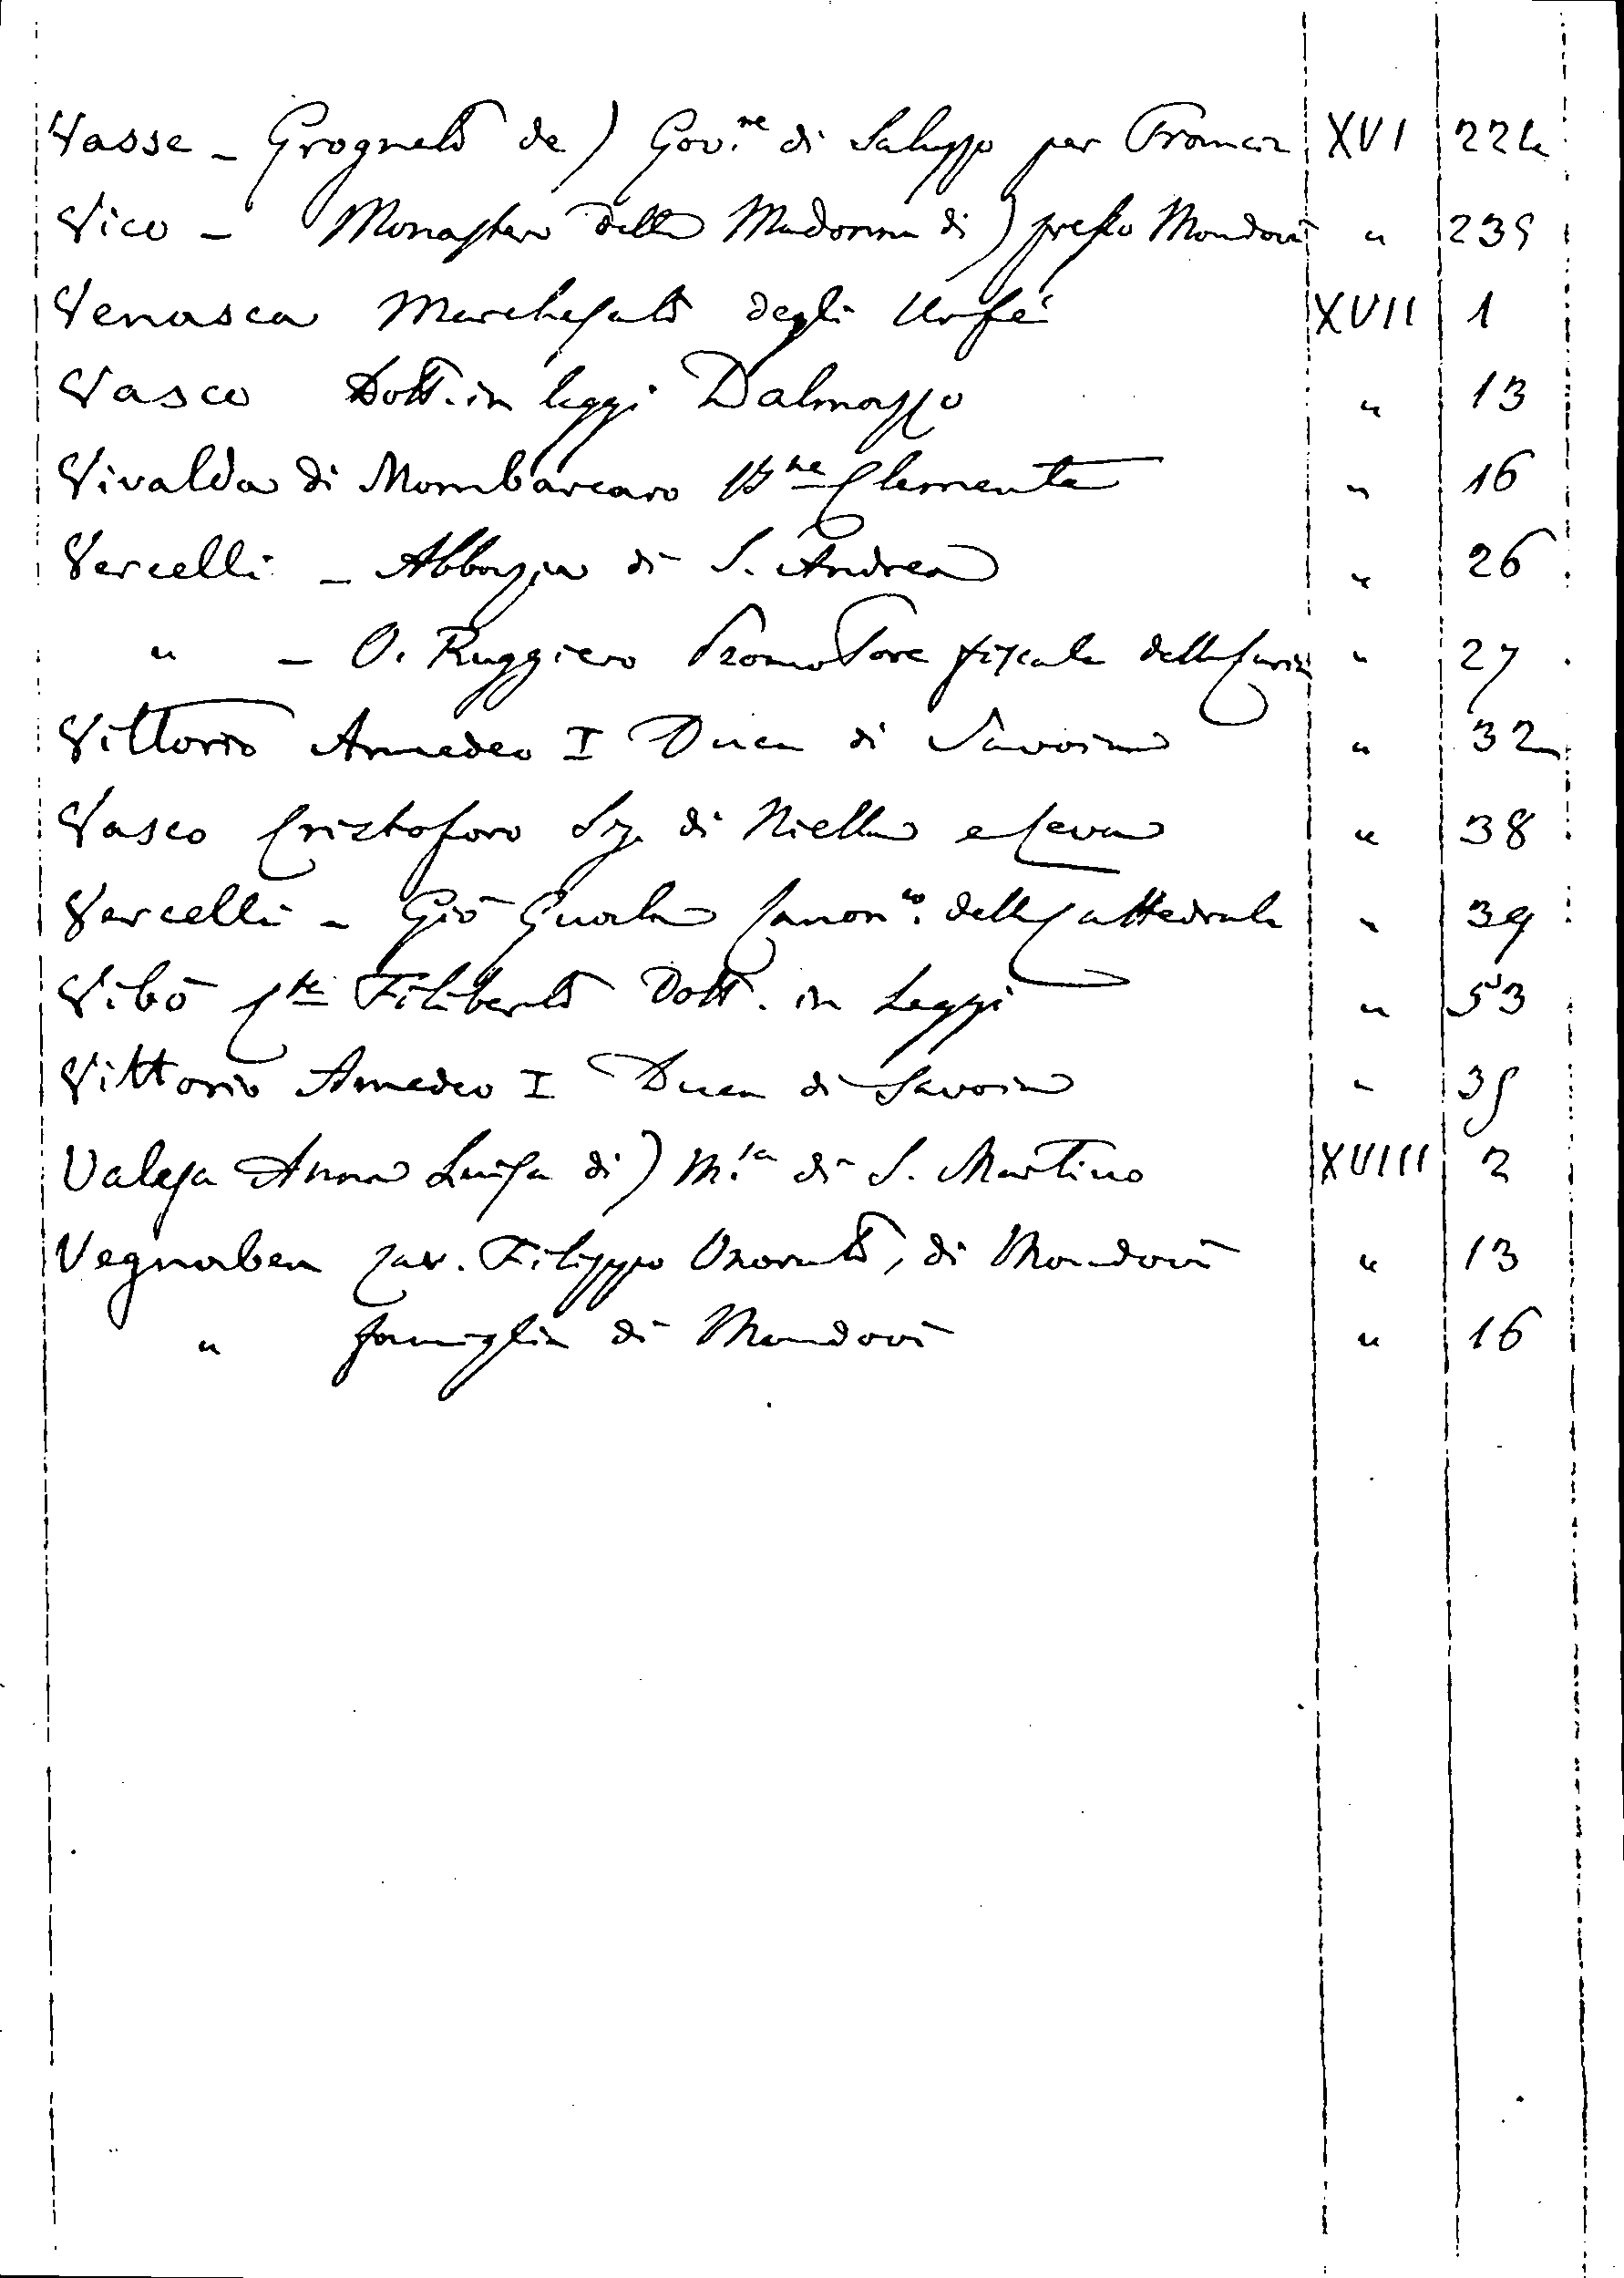 Vasse - Grogneto de) Gov.re di Saluzzo per Francia XVI 224
Vico - Monastero della Madonna di) presso Mondovì " 235
Venasca Marchesato degli Urfé XVII 1
Vasco Dott. in leggi Dalmazzo " 13
Vivalda di Mombarcaro Bne Clemente " 16
Vercelli - Abbazia di S. Andrea " 26
" - O. Ruggiero Promotore fiscale della Curia " 27
Vittorio Amedeo I Duca di Savoia " 32
Vasco Cristoforo Sig. di Niella e Ceva " 38
Vercelli - Giò Guala Canon.co della Cattedrale " 39
Vibò Cte Filiberto Dott. in Leggi " 53
Vittorio Amedeo I Duca di Savoia " 35
Valesa Anna Luisa di) M.sa di S. Martino XVIII 2
Vegnaben Cav. Filippo Onorato, di Mondovì " 13
" famiglia di Mondovì " 16